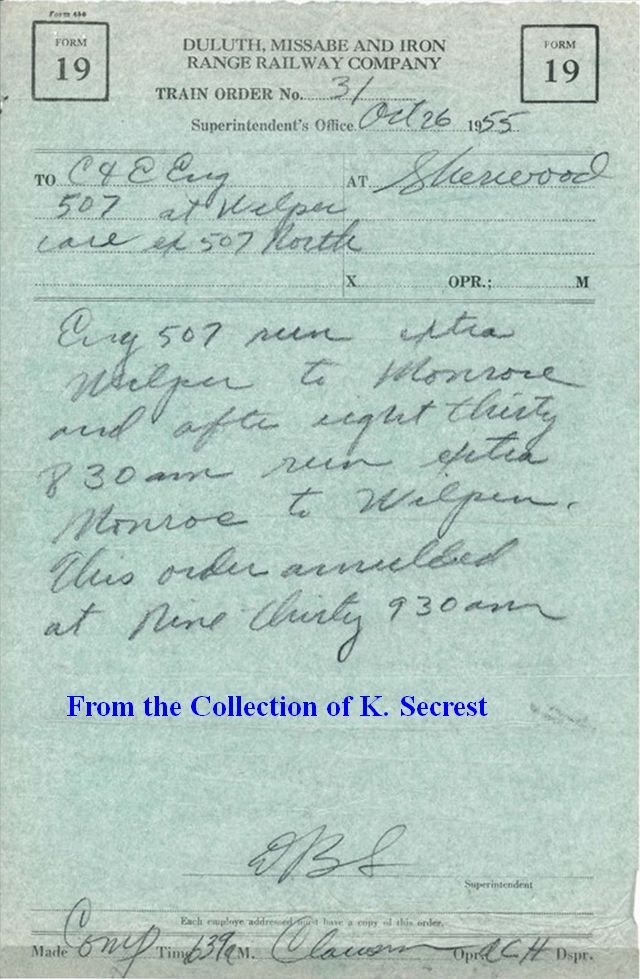 Form 456
FORM
19
DULUTH, MISSABE AND IRON
RANGE RAILWAY COMPANY
FORM
19
TRAIN ORDER No. 31
Superintendent's Office Oct 26 1955
TO C & E Eng AT Sherwood
507 at Wilpen
care ex 507 North
X OPR.; M
Eng 507 run extra
Wilpen to Monroe
and after eight thirty
8 30 am run extra
Monroe to Wilpen.
This order annulled
at Nine thirty 9 30 am
From the Collection of K. Secrest
DBS
Superintendent
Each employe addressed must have a copy of this order.
Made Comp Time 639a M. Clawson Opr. Dspr.